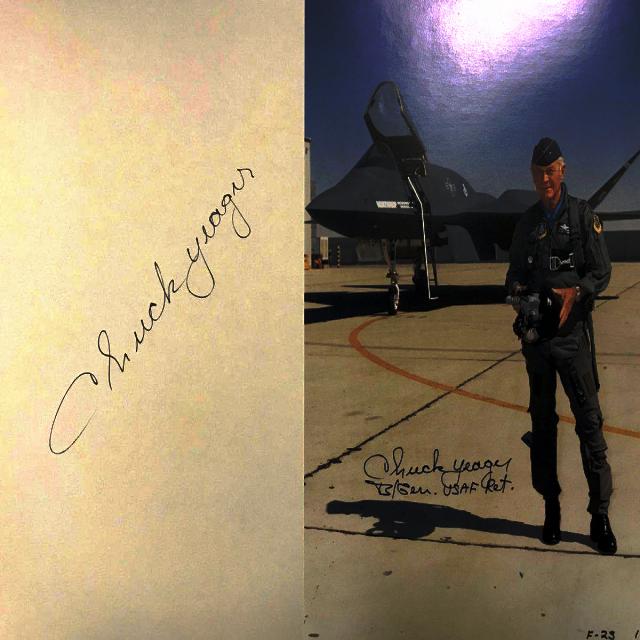 Chuck Yeager
Chuck Yeager
B/Gen. USAF Ret.
F-23